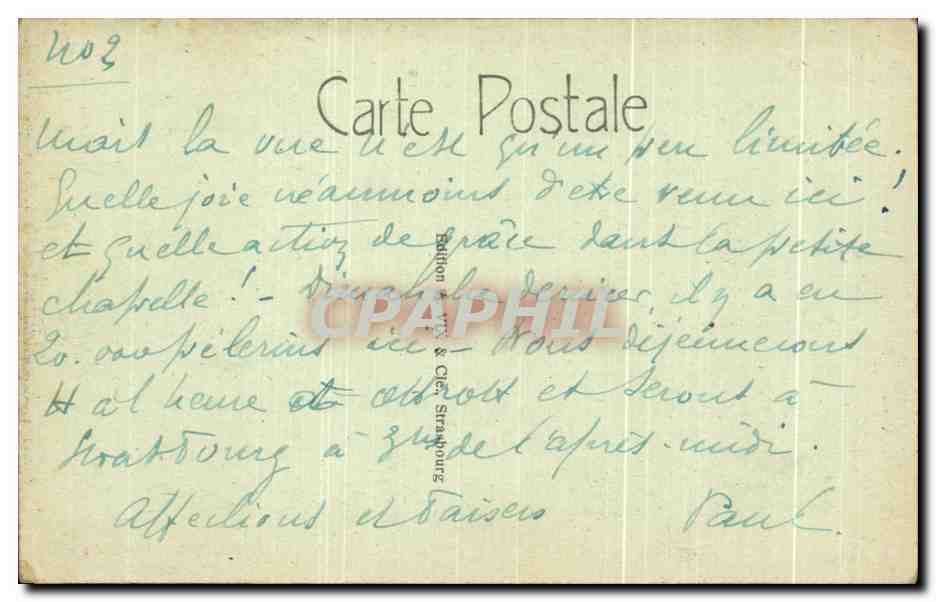 No 2
Carte Postale
mais la vue n'est qu'un peu limitée.
Quelle joie néanmoins d'être venu ici !
et quelle action de grâce dans la petite
chapelle ! – Dimanche dernier il y a eu
20.000 pèlerins ici – Nous déjeunerons
à l'heure Ottrott et serons à
Strasbourg à 3 hs de l'après-midi.
Affections et baisers Paul
Edition VIX & Cie., Strasbourg
CPAPHIL